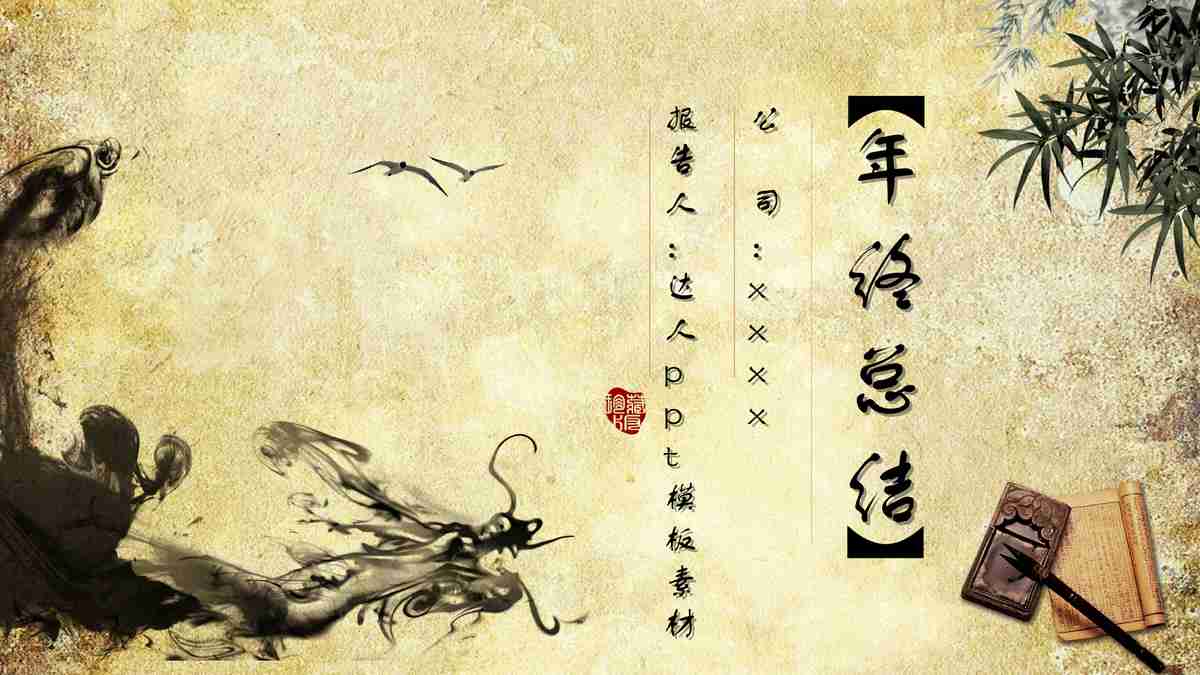 【年终总结】
公司:xxxx
报告人:达人ppt模板素材